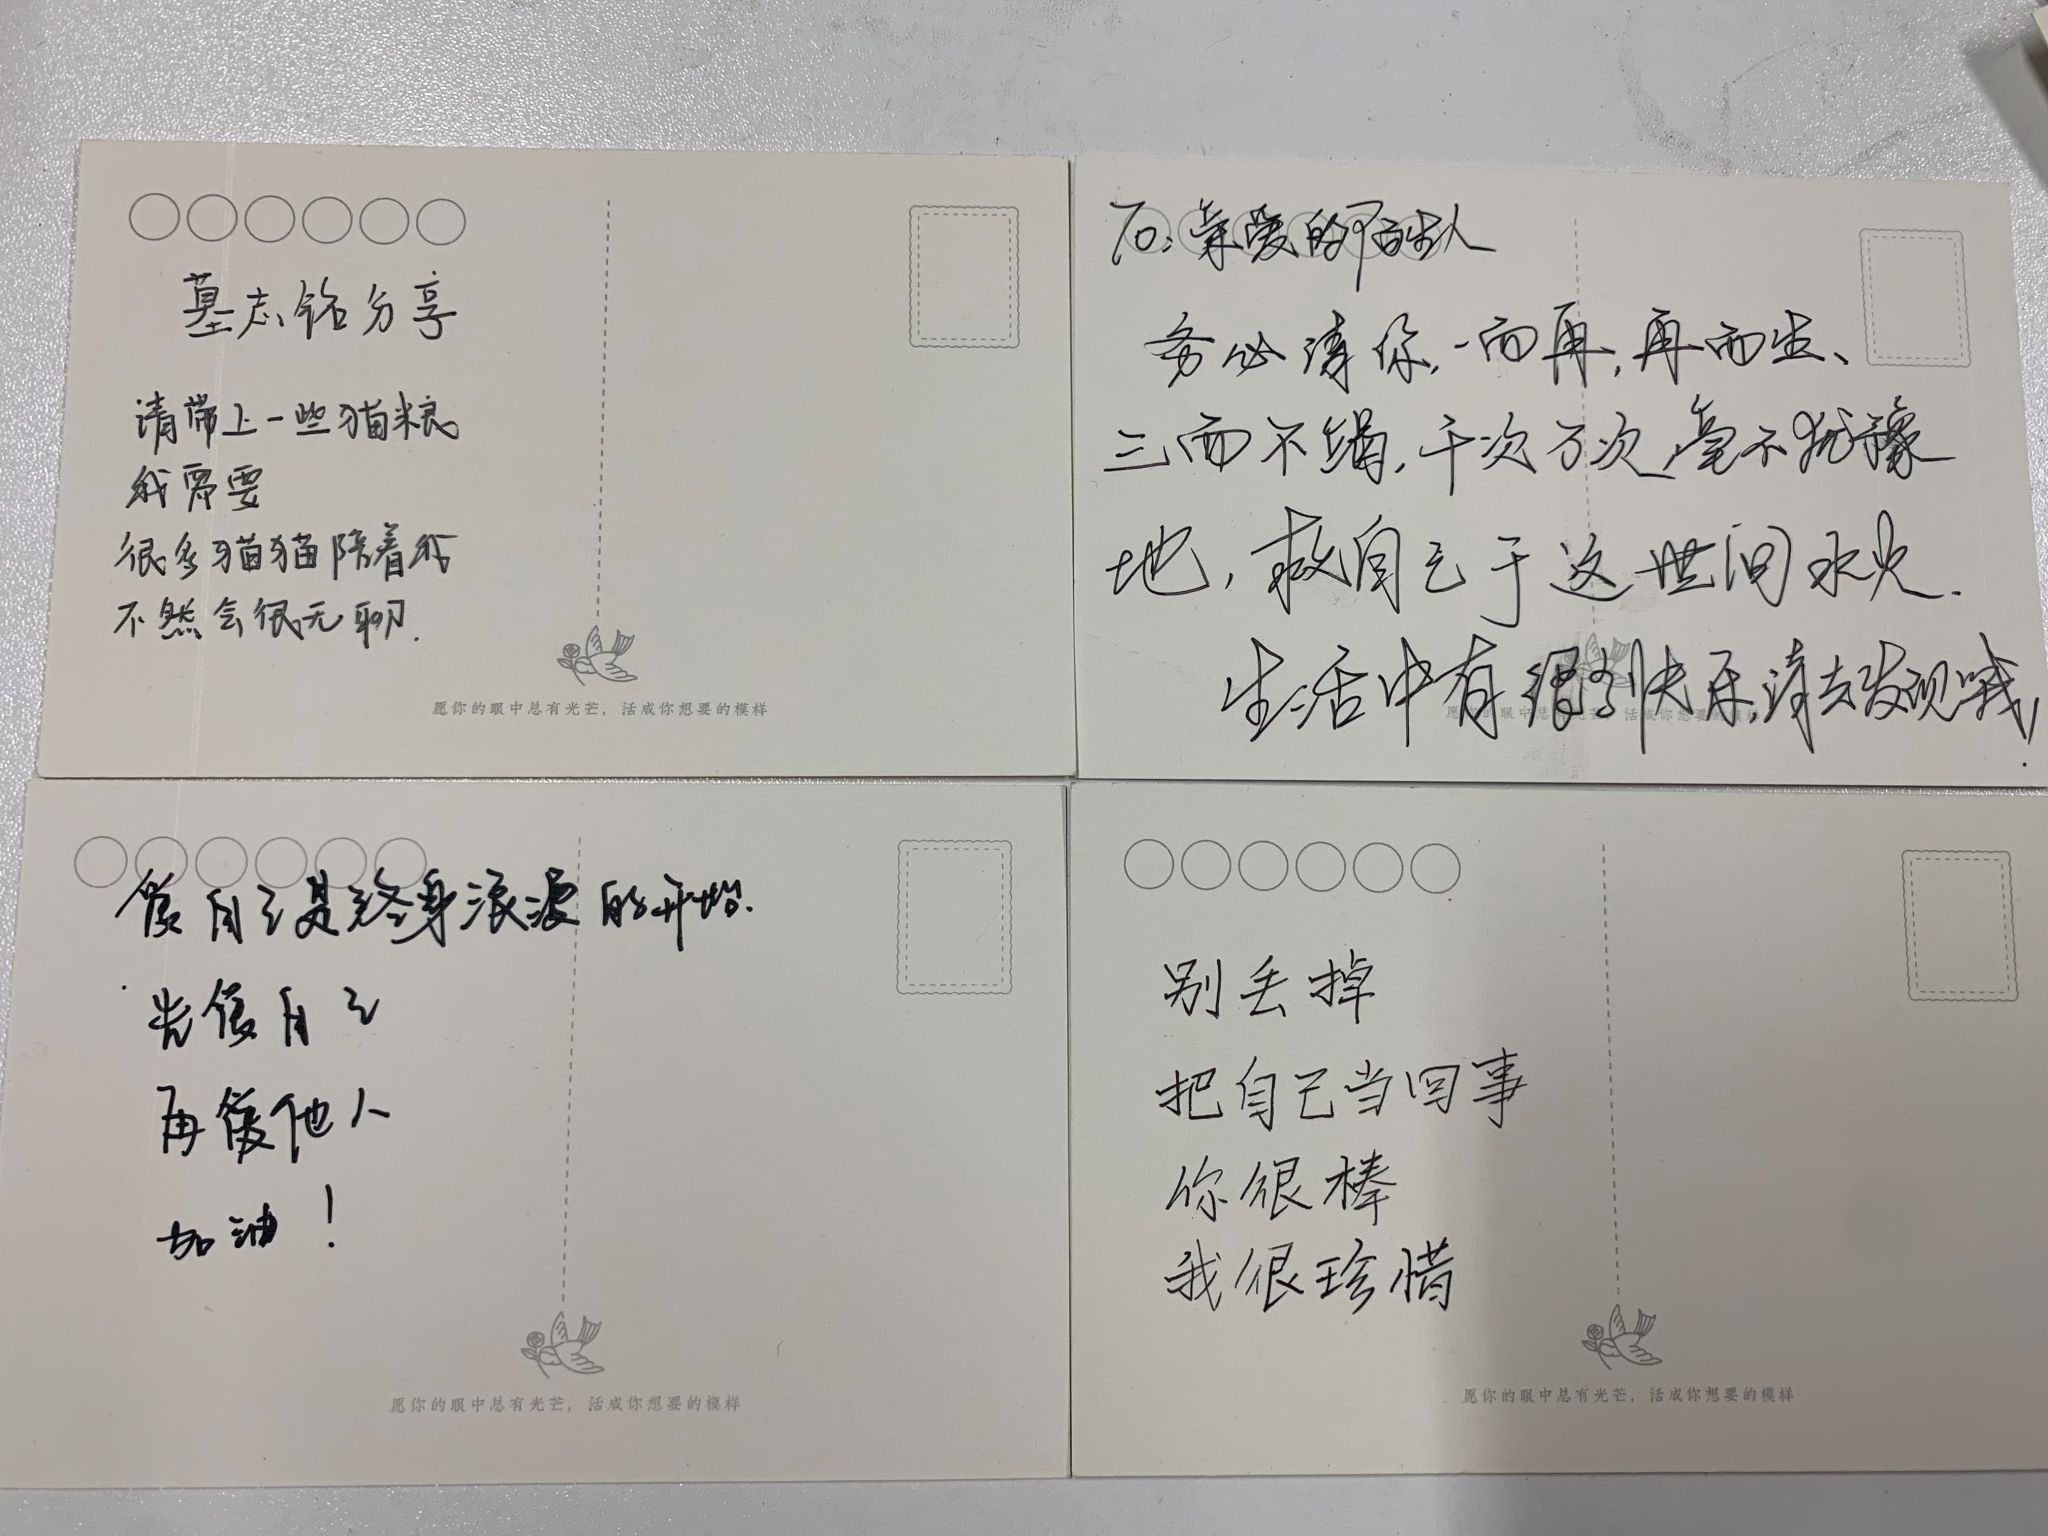 墓志铭分享
请带上一些猫粮
我需要
很多猫猫陪着我
不然会很无聊.
愿你的眼中总有光芒，活成你想要的模样
TO：亲爱的陌生人
务必请你，一而再，再而生、
三而不竭，千次万次，毫不犹豫
地，救自己于这世间水火.
生活中有很多快乐，请去发现哦，
愿你的眼中总有光芒，活成你想要的模样
爱自己是终身浪漫的开始.
先爱自己
再爱他人
加油！
愿你的眼中总有光芒，活成你想要的模样
别丢掉
把自己当回事
你很棒
我很珍惜
愿你的眼中总有光芒，活成你想要的模样